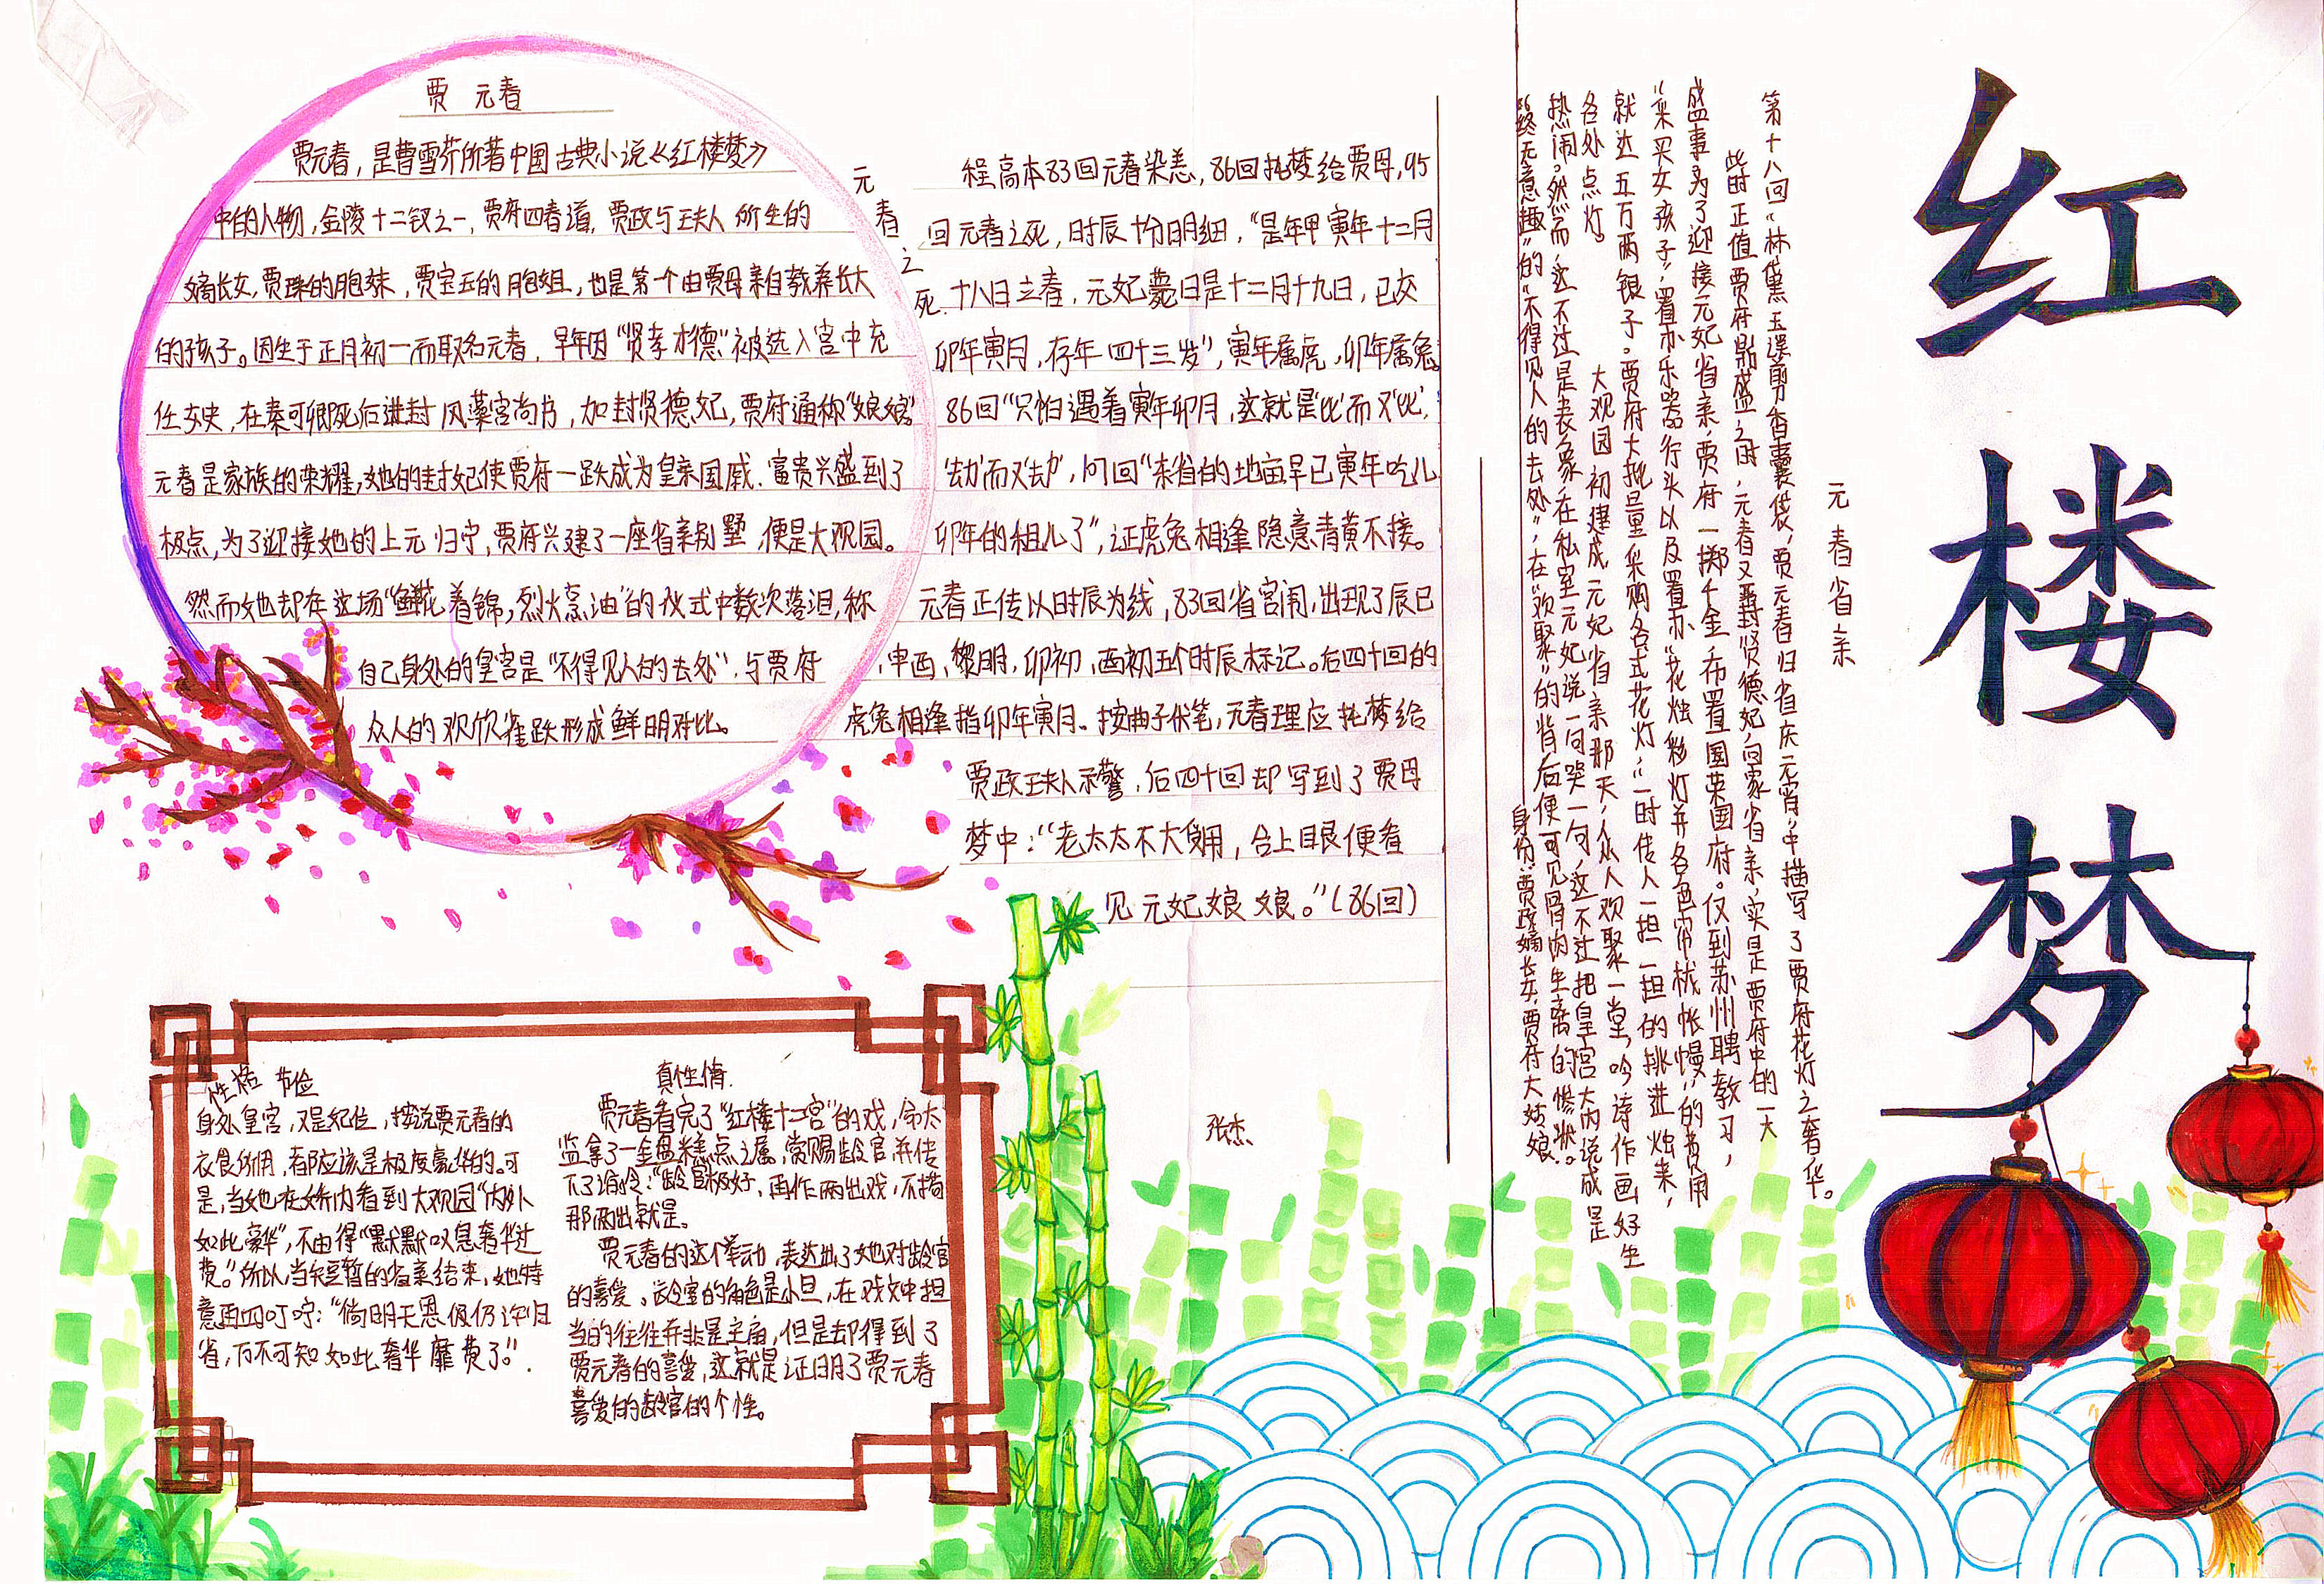 红楼梦
元春省亲
第十八回“林黛玉误剪香囊袋,贾元春归省庆元宵”中描写了贾府花灯之奢华。
此时正值贾府鼎盛之时,元春又晋封贤德妃,向家省亲,实是贾府中的一大
盛事。为了迎接元妃省亲,贾府一掷千金,布置国荣国府。仅到苏州聘教习,
“采买女孩子”,置办乐器行头以及置办“花烛彩灯并各色帘栊帐幔”的费用
就达五万两银子。贾府大批量采购各式花灯,“一时传人一担一担的挑进烛来,
各处点灯。
大观园初建成,元妃省亲那天,众人欢聚一堂,吟诗作画好生
热闹。然而,这不过是表象,在私室元妃说一句哭一句,这不过把皇宫大内说成是
“终无意趣”的“不得见人的去处”,在“欢聚”的背后便可见骨肉生离的惨状。
身份:贾政嫡长女,贾府大姑娘。
贾 元春
贾元春,是曹雪芹所著中国古典小说《红楼梦》
中的人物,金陵十二钗之一,贾府四春道,贾政与王夫人所生的
嫡长女,贾珠的胞妹,贾宝玉的胞姐,也是第一个由贾母亲自教养长大
的孩子。因生于正月初一而取名元春,早年因“贤孝才德”被选入宫中充
任女史,在秦可卿死后进封凤藻宫尚书,加封贤德妃,贾府通称“娘娘”
元春是家族的荣耀,她的封妃使贾府一跃成为皇亲国戚.富贵兴盛到了
极点,为了迎接她的上元归宁,贾府兴建了一座省亲别墅,便是大观园。
然而她却在这场“鲜花着锦,烈火烹油”的仪式中数次落泪,称
自己身处的皇宫是“不得见人的去处”,与贾府
众人的欢欣雀跃形成鲜明对比。
元春之死.
程高本83回元春染恙,86回托梦给贾母,95
回元春之死,时辰十分明细,“是年甲寅年十二月
十八日立春,元妃薨日是十二月十九日,已交
卯年寅月,存年四十三岁”,寅年属虎,卯年属兔。
86回“只怕遇着寅年卯月,这就是‘比’而又‘比’,
‘劫’而又‘劫’,问回“东省的地亩早已寅年吃儿
卯年的租儿了”,证虎兔相逢隐意青黄不接。
元春正传以时辰为线,83回省宫闱,出现了辰巳
,申酉,黎明,卯初,酉初五个时辰标记。后四十回的
虎兔相逢指卯年寅月。按曲子伏笔,元春理应托梦给
贾政王夫人示警,后四十回却写到了贾母
梦中:“老太太不大受用,合上眼便看
见元妃娘娘。”(86回)
张杰
性格 节俭
身处皇宫,又是妃位,按说贾元春的
衣食所用,都应该是极度豪华的。可
是,当她在轿内看到大观园“内外
如此豪华”,不由得“默默叹息奢华过
费。”所以,当短暂的省亲结束,她特
意再四叮咛:“倘明天恩假仍许归
省,万不可如此奢华靡费了。”.
真性情.
贾元春看完了“红楼十二宫”的戏,命太
监拿了一金盘糕点之属,赏赐龄官,并传
下了谕令:“龄官极好,再作两出戏,不拘
那两出就是。
贾元春的这个举动,表达出了她对龄官
的喜爱。龄官的角色是小旦,在戏文中担
当的往往并非是主角,但是却得到了
贾元春的喜爱,这就是证明了贾元春
喜爱的龄官的个性。